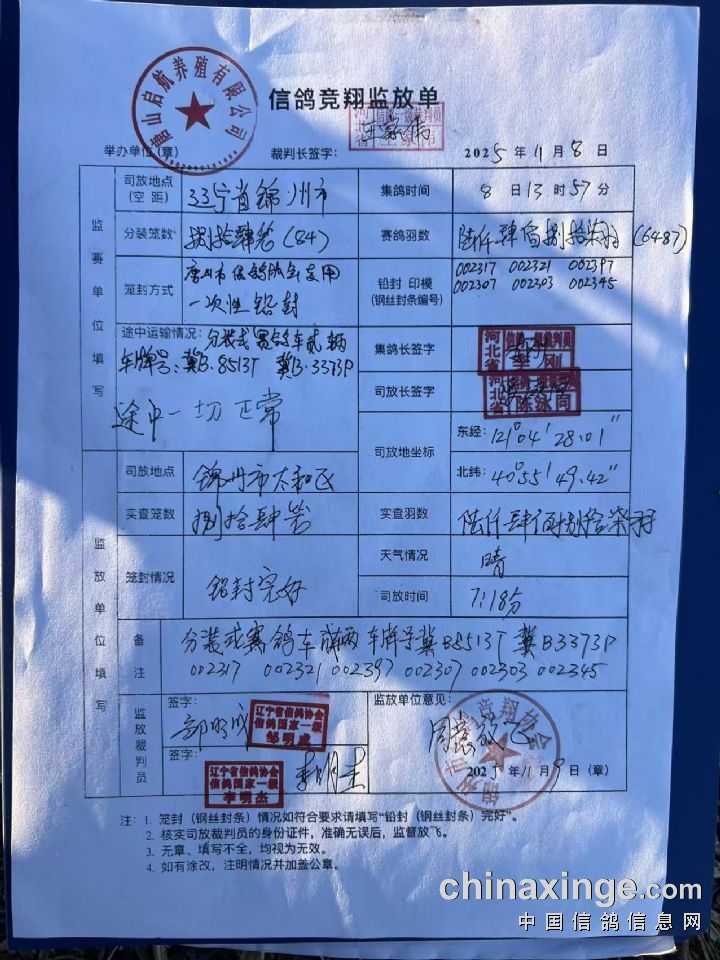 信鸽竞翔监放单
唐山启航养殖有限公司
举办单位(章) 裁判长签字: 2025年11月8日
司放地点(空距) 辽宁省锦州市 集鸽时间 8日13时57分
分装笼数 捌拾肆笼(84) 赛鸽羽数 陆仟肆佰捌拾柒羽(6487)
笼封方式 唐山市信鸽协会专用
一次性铅封
铅封 印模(钢丝封条编号) 002317 002321 002397
002307 002303 002345
监赛单位填写
途中运输情况:分装式赛鸽车贰辆
车牌号:冀B·8513T 冀B·3373P
途中一切正常
集鸽长签字 河北省 信鸽一级裁判员 李刚
司放长签字 河北省
司放地坐标 东经:121°04′28.01″
北纬:40°55′49.42″
监放单位填写
司放地点 锦州市太和区
实查笼数 捌拾肆笼 实查羽数 陆仟肆佰捌拾柒羽
笼封情况 铅封完好 天气情况 晴
司放时间 7:18分
备注 分装式赛鸽车贰辆 车牌号冀B8513T 冀B3373P
002317 002321 002397 002307 002303 002345
监放裁判员
签字: 邹明成
辽宁省信鸽协会
信鸽国家一级
邹明成
签字: 李明杰
辽宁省信鸽协会
信鸽国家一级
李明杰
监放单位意见:
同意放飞
2025年11月9日(章)
注: 1. 笼封(钢丝封条)情况如符合要求请填写“铅封(钢丝封条)完好”。
2. 核实司放裁判员的身份证件,准确无误后,监督放飞。
3. 无章、填写不全,均视为无效。
4. 如有涂改,注明情况并加盖公章。
chinaxinge.com
中国信鸽信息网